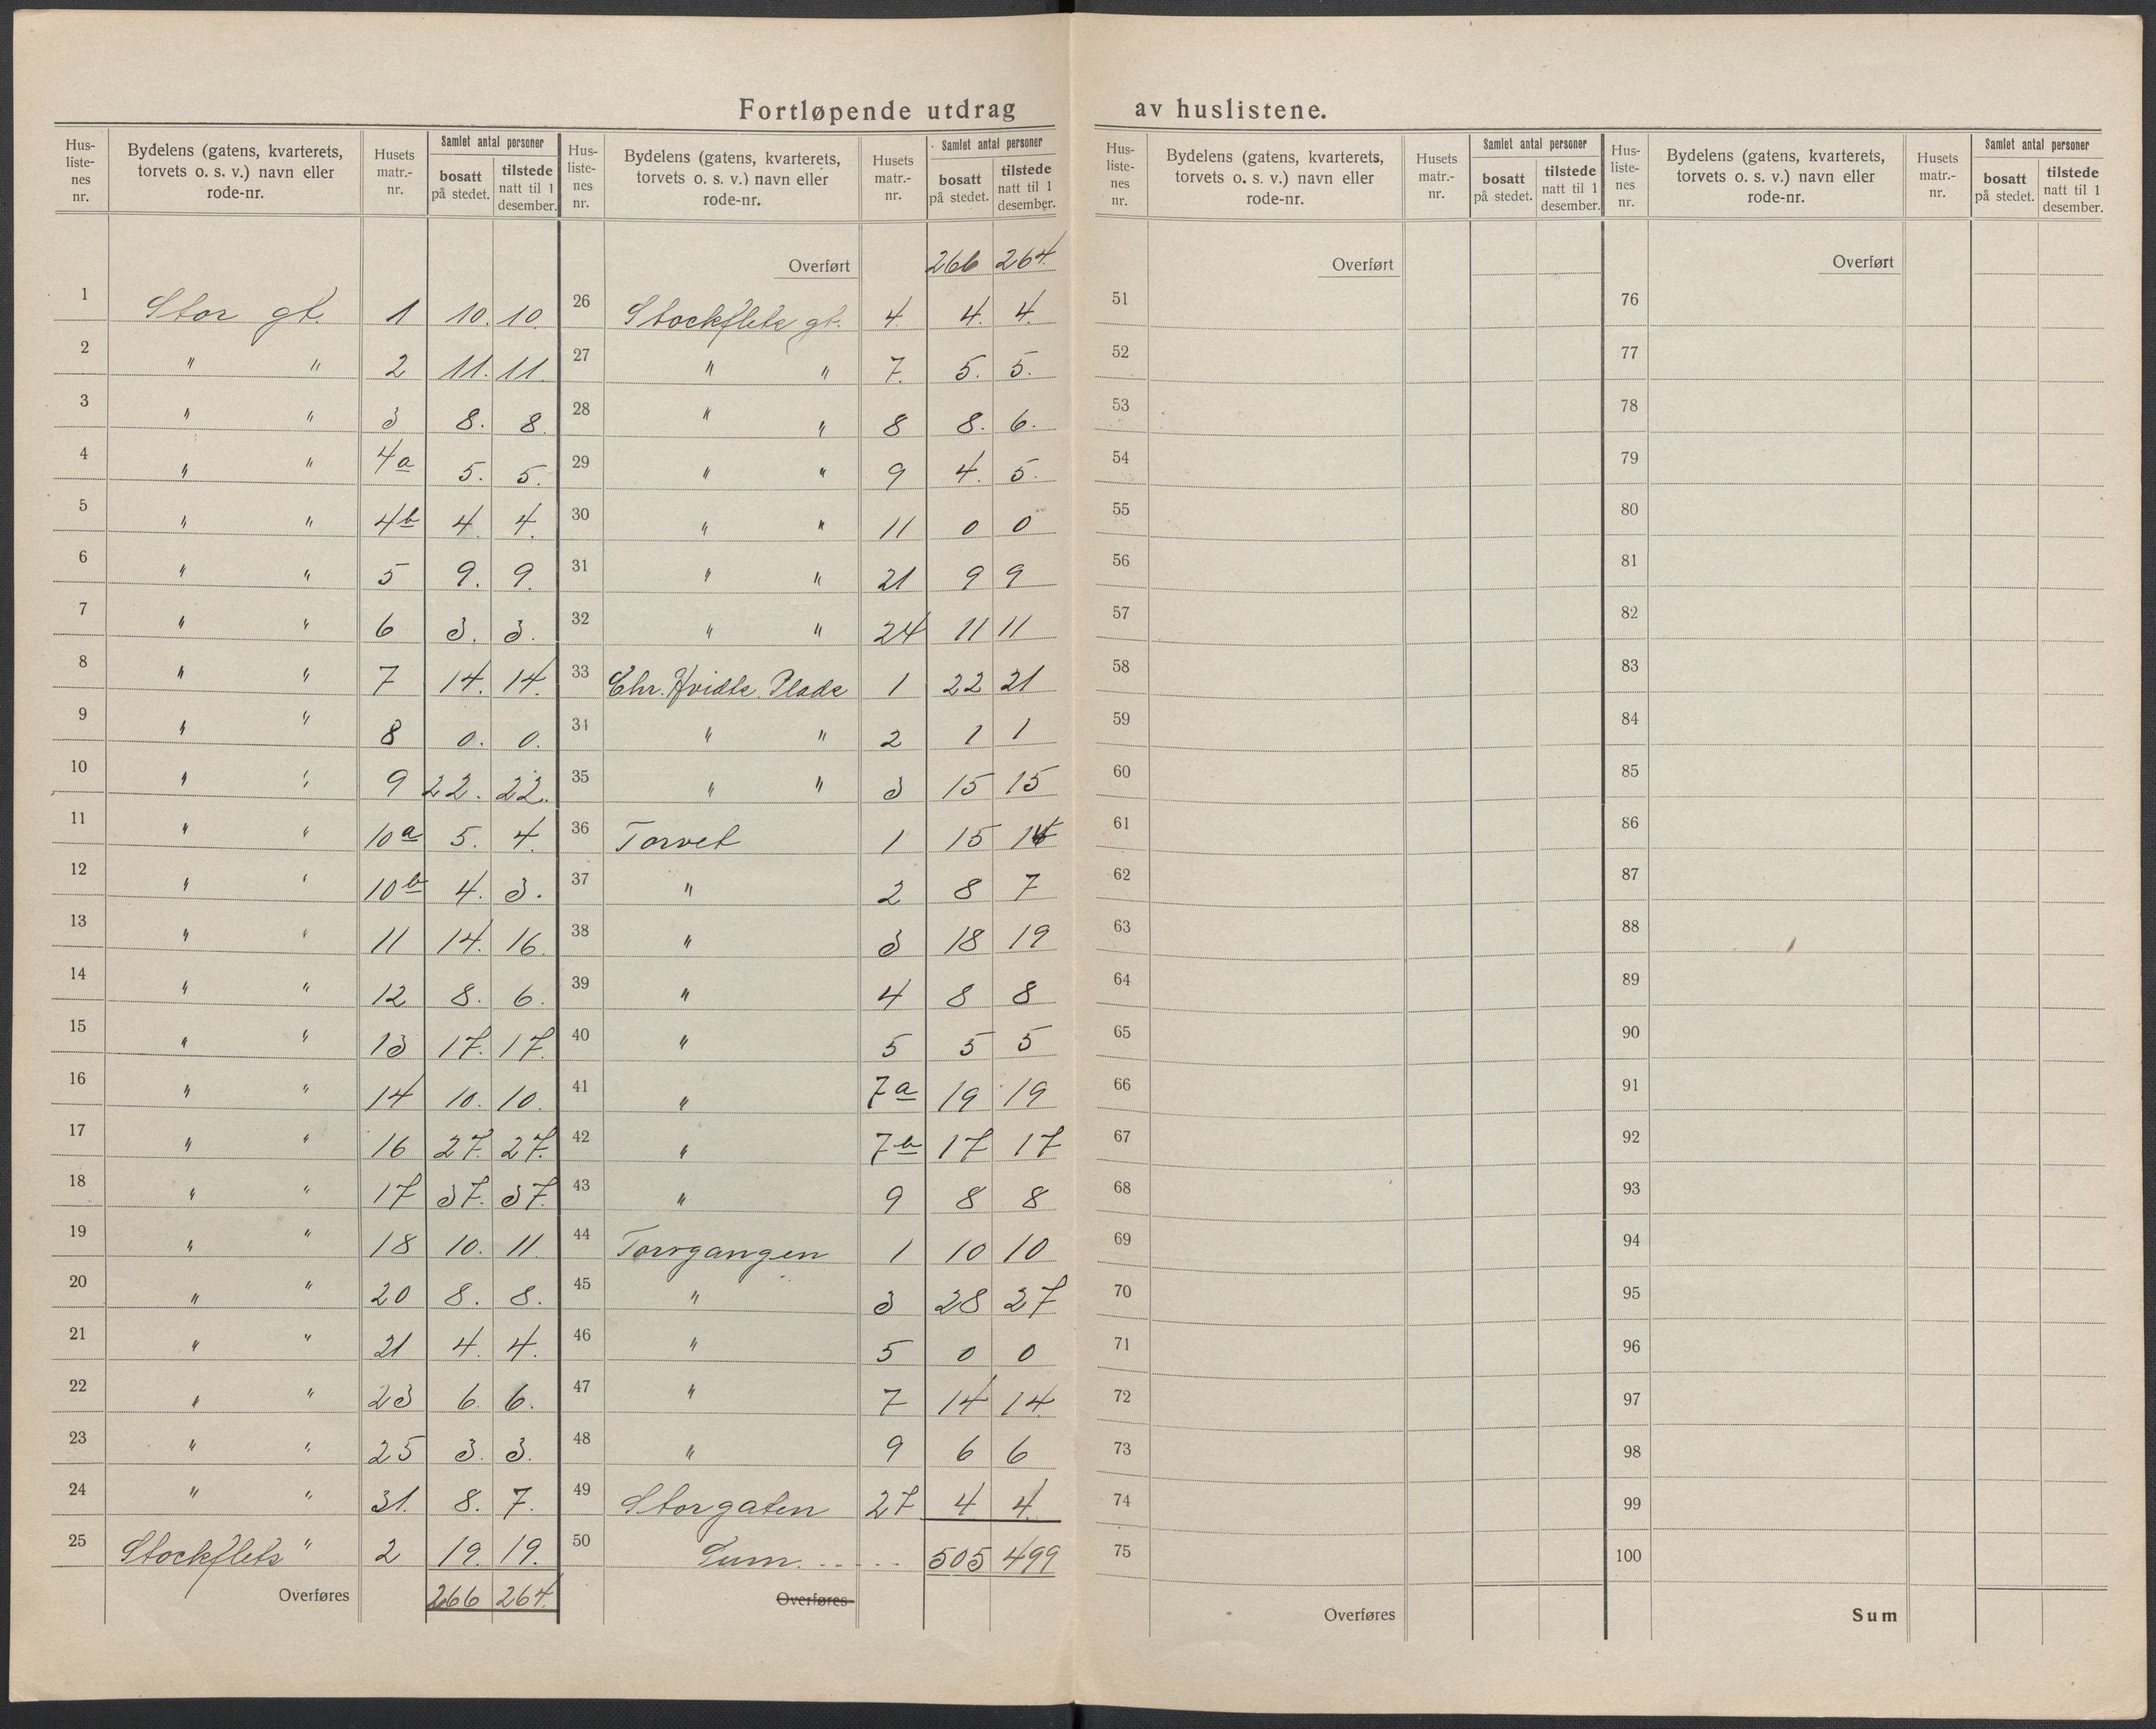 Fortløpende utdrag av huslistene.
Hus-listenes nr. | Bydelens (gatens, kvarterets, torvets o. s. v.) navn eller rode-nr. | Husets matr.-nr. | Samlet antal personer bosatt på stedet. | tilstede natt til 1 desember.
1 Stor gt. 1 10. 10.
2 " " 2 11. 11.
3 " " 3 8. 8.
4 " " 4a 5. 5.
5 " " 4b 4. 4.
6 " " 5 9. 9.
7 " " 6 3. 3.
8 " " 7 14. 14.
9 " " 8 0. 0.
10 " " 9 22. 22.
11 " " 10a 5. 4.
12 " " 10b 4. 3.
13 " " 11 14. 16.
14 " " 12 8. 6.
15 " " 13 17. 17.
16 " " 14 10. 10.
17 " " 16 27. 27.
18 " " 17 37. 37.
19 " " 18 10. 11.
20 " " 20 8. 8.
21 " " 21 4. 4.
22 " " 23 6. 6.
23 " " 25 3. 3.
24 " " 31. 8. 7.
25 Stockflets " 2 19. 19.
Overføres 266 264.
Hus-listenes nr. | Bydelens (gatens, kvarterets, torvets o. s. v.) navn eller rode-nr. | Husets matr.-nr. | Samlet antal personer bosatt på stedet. | tilstede natt til 1 desember.
Overført 266 264.
26 Stockflets gt. 4 4. 4.
27 " " 7. 5. 5.
28 " " 8 8. 6.
29 " " 9 4. 5.
30 " " 11 0 0
31 " " 21 9 9
32 " " 24 11 11
33 Chr. Hvidts Plads 1 22 21
34 " " 2 1 1
35 " " 3 15 15
36 Torvet 1 15 14
37 " 2 8 7
38 " 3 18 19
39 " 4 8 8
40 " 5 5 5
41 " 7a 19 19
42 " 7b 17 17
43 " 9 8 8
44 Torvgangen 1 10 10
45 " 3 28 27
46 " 5 0 0
47 " 7 14 14.
48 " 9 6 6
49 Storgaten 27 4 4.
50 Sum..... 505 499
Overføres
Hus-listenes nr. | Bydelens (gatens, kvarterets, torvets o. s. v.) navn eller rode-nr. | Husets matr.-nr. | Samlet antal personer bosatt på stedet. | tilstede natt til 1 desember.
Overført
51
52
53
54
55
56
57
58
59
60
61
62
63
64
65
66
67
68
69
70
71
72
73
74
75
Overføres
Hus-listenes nr. | Bydelens (gatens, kvarterets, torvets o. s. v.) navn eller rode-nr. | Husets matr.-nr. | Samlet antal personer bosatt på stedet. | tilstede natt til 1 desember.
Overført
76
77
78
79
80
81
82
83
84
85
86
87
88
89
90
91
92
93
94
95
96
97
98
99
100
Sum